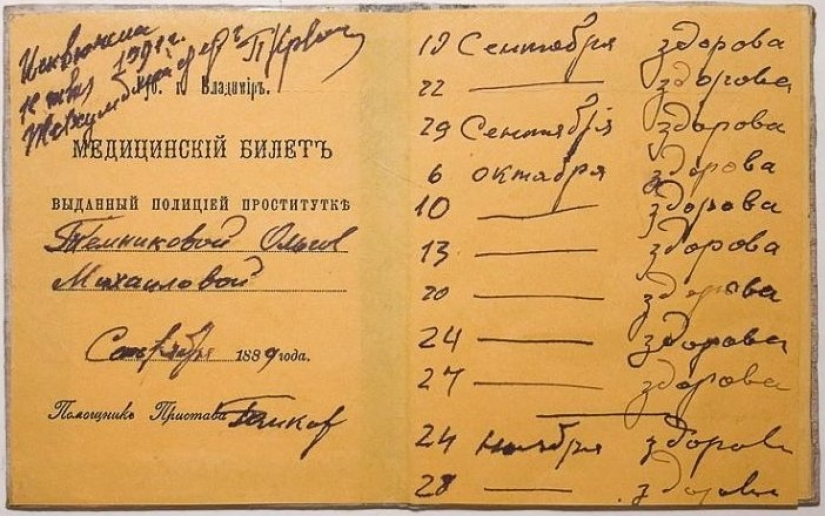 1991 г.
Губ. г. Владимiръ.
МЕДИЦИНСКIЙ БИЛЕТЪ
ВЫДАННЫЙ ПОЛИЦIЕЙ ПРОСТИТУТКѢ
Темниковой Ольгов
Михаиловой
Сентября 1889 года.
Помощникъ Пристава
19 Сентября здорова
22 — здорова
29 Сентября здорова
6 октября здорова
10 — здорова
13 — здорова
20 — здорова
24 — здорова
27 — здорова
24 ноября здорова
28 — здорова